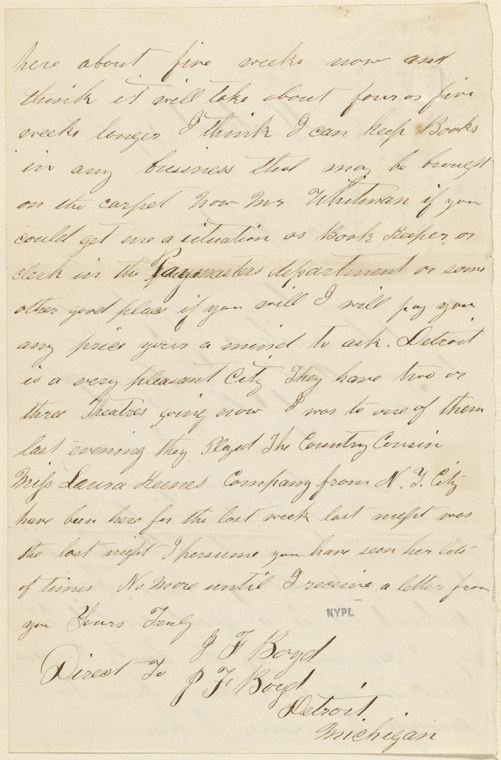 here about five weeks now and
think it will take about four or five
weeks longer I think I can keep Books
in any business that may be brought
on the carpet now Mr Whitman if you
could get me a situation as Book Keeper or
clerk in the Paymasters department or some
other good place if you will I will pay you
any price your a mind to ask. Detroit
is a very pleasant City They have two or
three Theatres going now I was to one of them
last evening they Played The Country Cousin
Miss Laura Keenes Company from N. Y. City
have been here for the last week last night was
the last night I persume you have seen her lots
of times. No more until I receive a letter from
you Yours Truly
NYPL
J F Boyd
Direct To J F Boyd
Detroit
Michigan